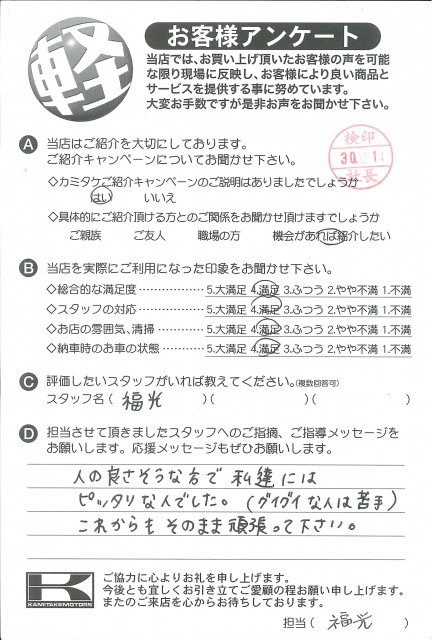 軽
お客様アンケート
当店では、お買い上げ頂いたお客様の声を可能
な限り現場に反映し、お客様により良い商品と
サービスを提供する事に努めています。
大変お手数ですが是非お声をお聞かせ下さい。
A 当店はご紹介を大切にしております。
ご紹介キャンペーンについてお聞かせ下さい。
検印
30. 1.
社長
◇カミタケご紹介キャンペーンのご説明はありましたでしょうか
はい いいえ
◇具体的にご紹介頂ける方とのご関係をお聞かせ頂けますでしょうか
ご親族 ご友人 職場の方 機会があれば紹介したい
B 当店を実際にご利用になった印象をお聞かせ下さい。
◇総合的な満足度 ・・・・・・・・・・・・ 5.大満足 4.満足 3.ふつう 2.やや不満 1.不満
◇スタッフの対応 ・・・・・・・・・・・・ 5.大満足 4.満足 3.ふつう 2.やや不満 1.不満
◇お店の雰囲気、清掃 ・・・・・・・・ 5.大満足 4.満足 3.ふつう 2.やや不満 1.不満
◇納車時のお車の状態 ・・・・・・・・ 5.大満足 4.満足 3.ふつう 2.やや不満 1.不満
C 評価したいスタッフがいれば教えてください。(複数回答可)
スタッフ名 ( 福光 )( )( )
D 担当させて頂きましたスタッフへのご指摘、ご指導メッセージを
お願いします。応援メッセージもぜひお願いします。
人の良さそうな方で 私達には
ピッタリな人でした。(グイグイな人は苦手)
これからも そのまま頑張って下さい。
K
KAMITAKEMOTORS
ご協力に心よりお礼を申し上げます。
今後とも宜しくお引き立てご愛顧の程お願い申し上げます。
またのご来店を心からお待ちしております。
担当 ( 福光 )